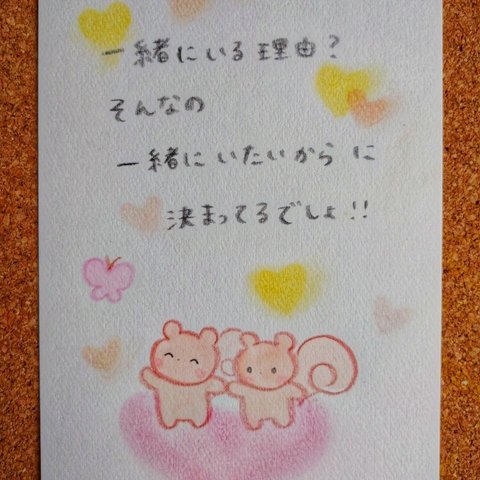 一緒にいる理由?
そんなの
一緒にいたいからに
決まってるでしょ!!